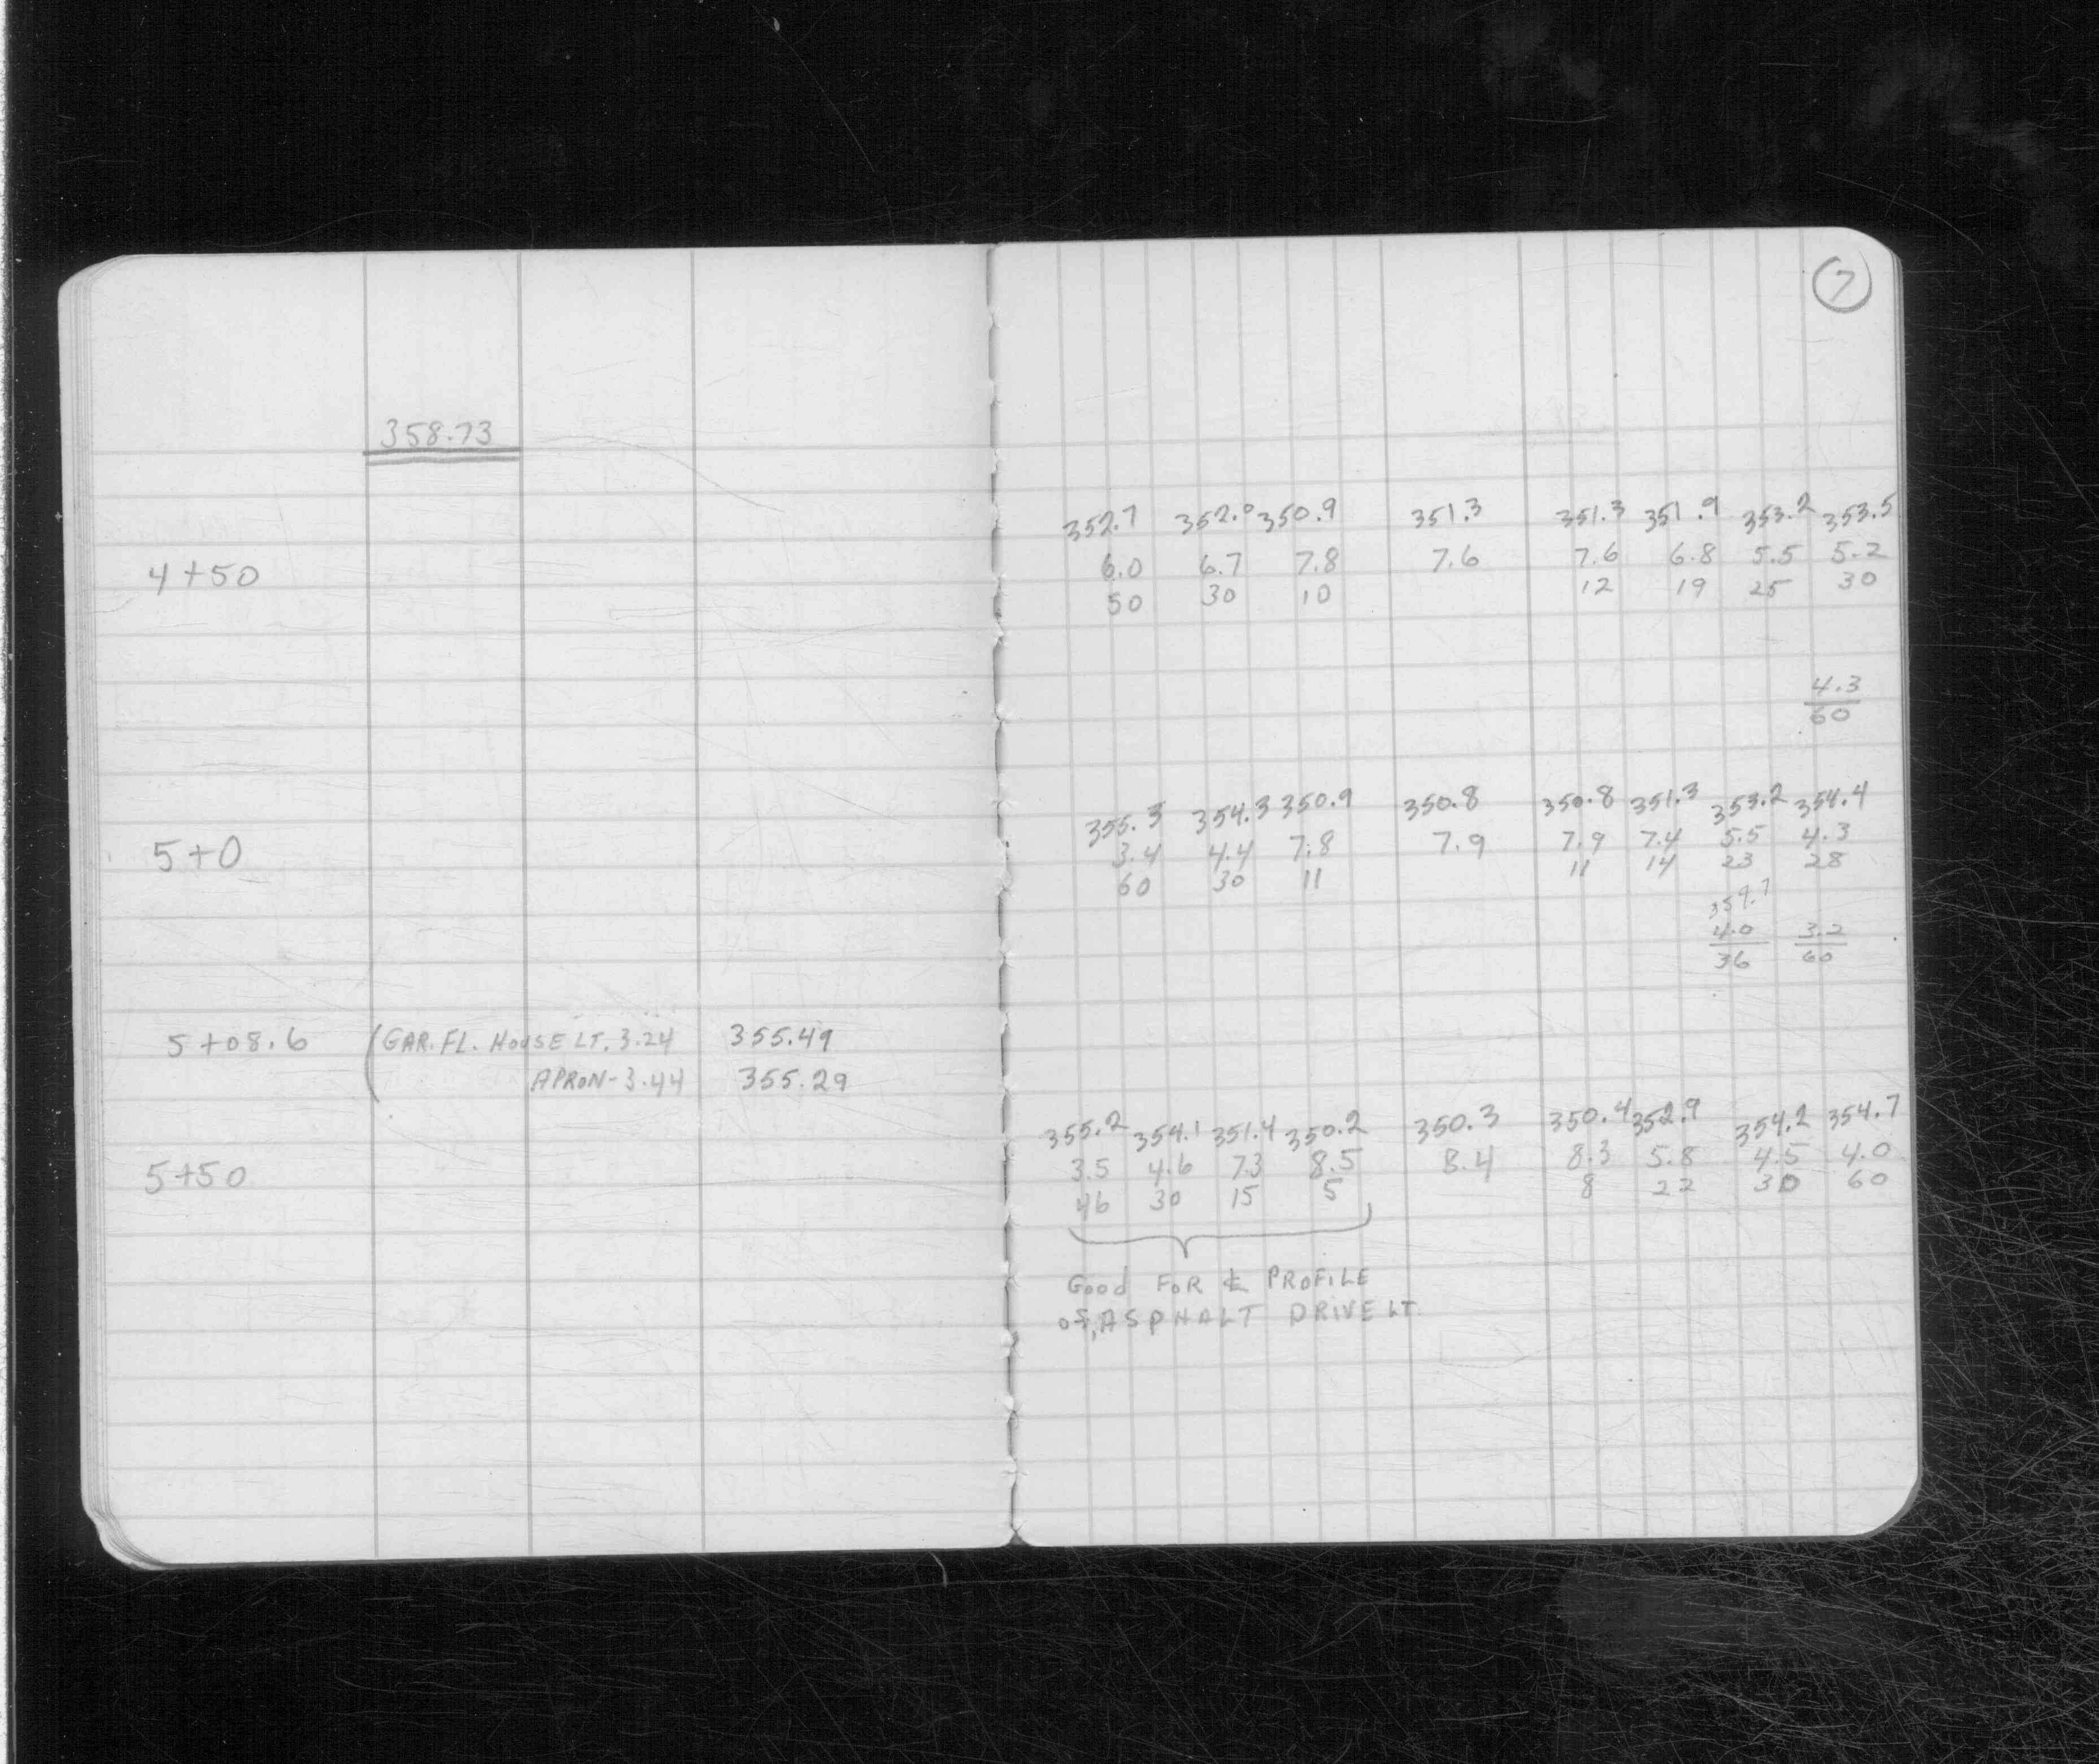 7
358.73
352.7 352.0 350.9 351.3 351.3 351.9 353.2 353.5
4+50 6.0 6.7 7.8 7.6 7.6 6.8 5.5 5.2
50 30 10 12 19 25 30
4.3
60
355.3 354.3 350.9 350.8 350.8 351.3 353.2 354.4
5+0 3.4 4.4 7.8 7.9 7.9 7.4 5.5 4.3
60 30 11 11 14 23 28
354.7
4.0 3.2
36 60
5+08.6 (GAR. FL. HOUSE LT. 3.24 355.49
APRON-3.44 355.29
355.2 354.1 351.4 350.2 350.3 350.4 352.9 354.2 354.7
5+50 3.5 4.6 7.3 8.5 8.4 8.3 5.8 4.5 4.0
46 30 15 5 8 22 30 60
Good FOR ℄ PROFILE
of, ASPHALT DRIVE LT.